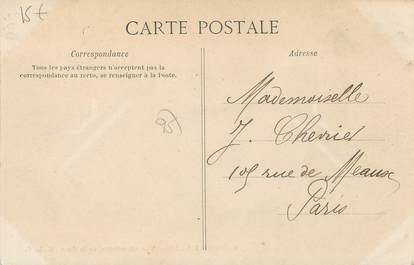 15€
CARTE POSTALE
Correspondance
Tous les pays étrangers n'acceptent pas la
correspondance au recto, se renseigner à la Poste.
Adresse
95
Mademoiselle
J. Chevrier
105 rue de Meaux
Paris